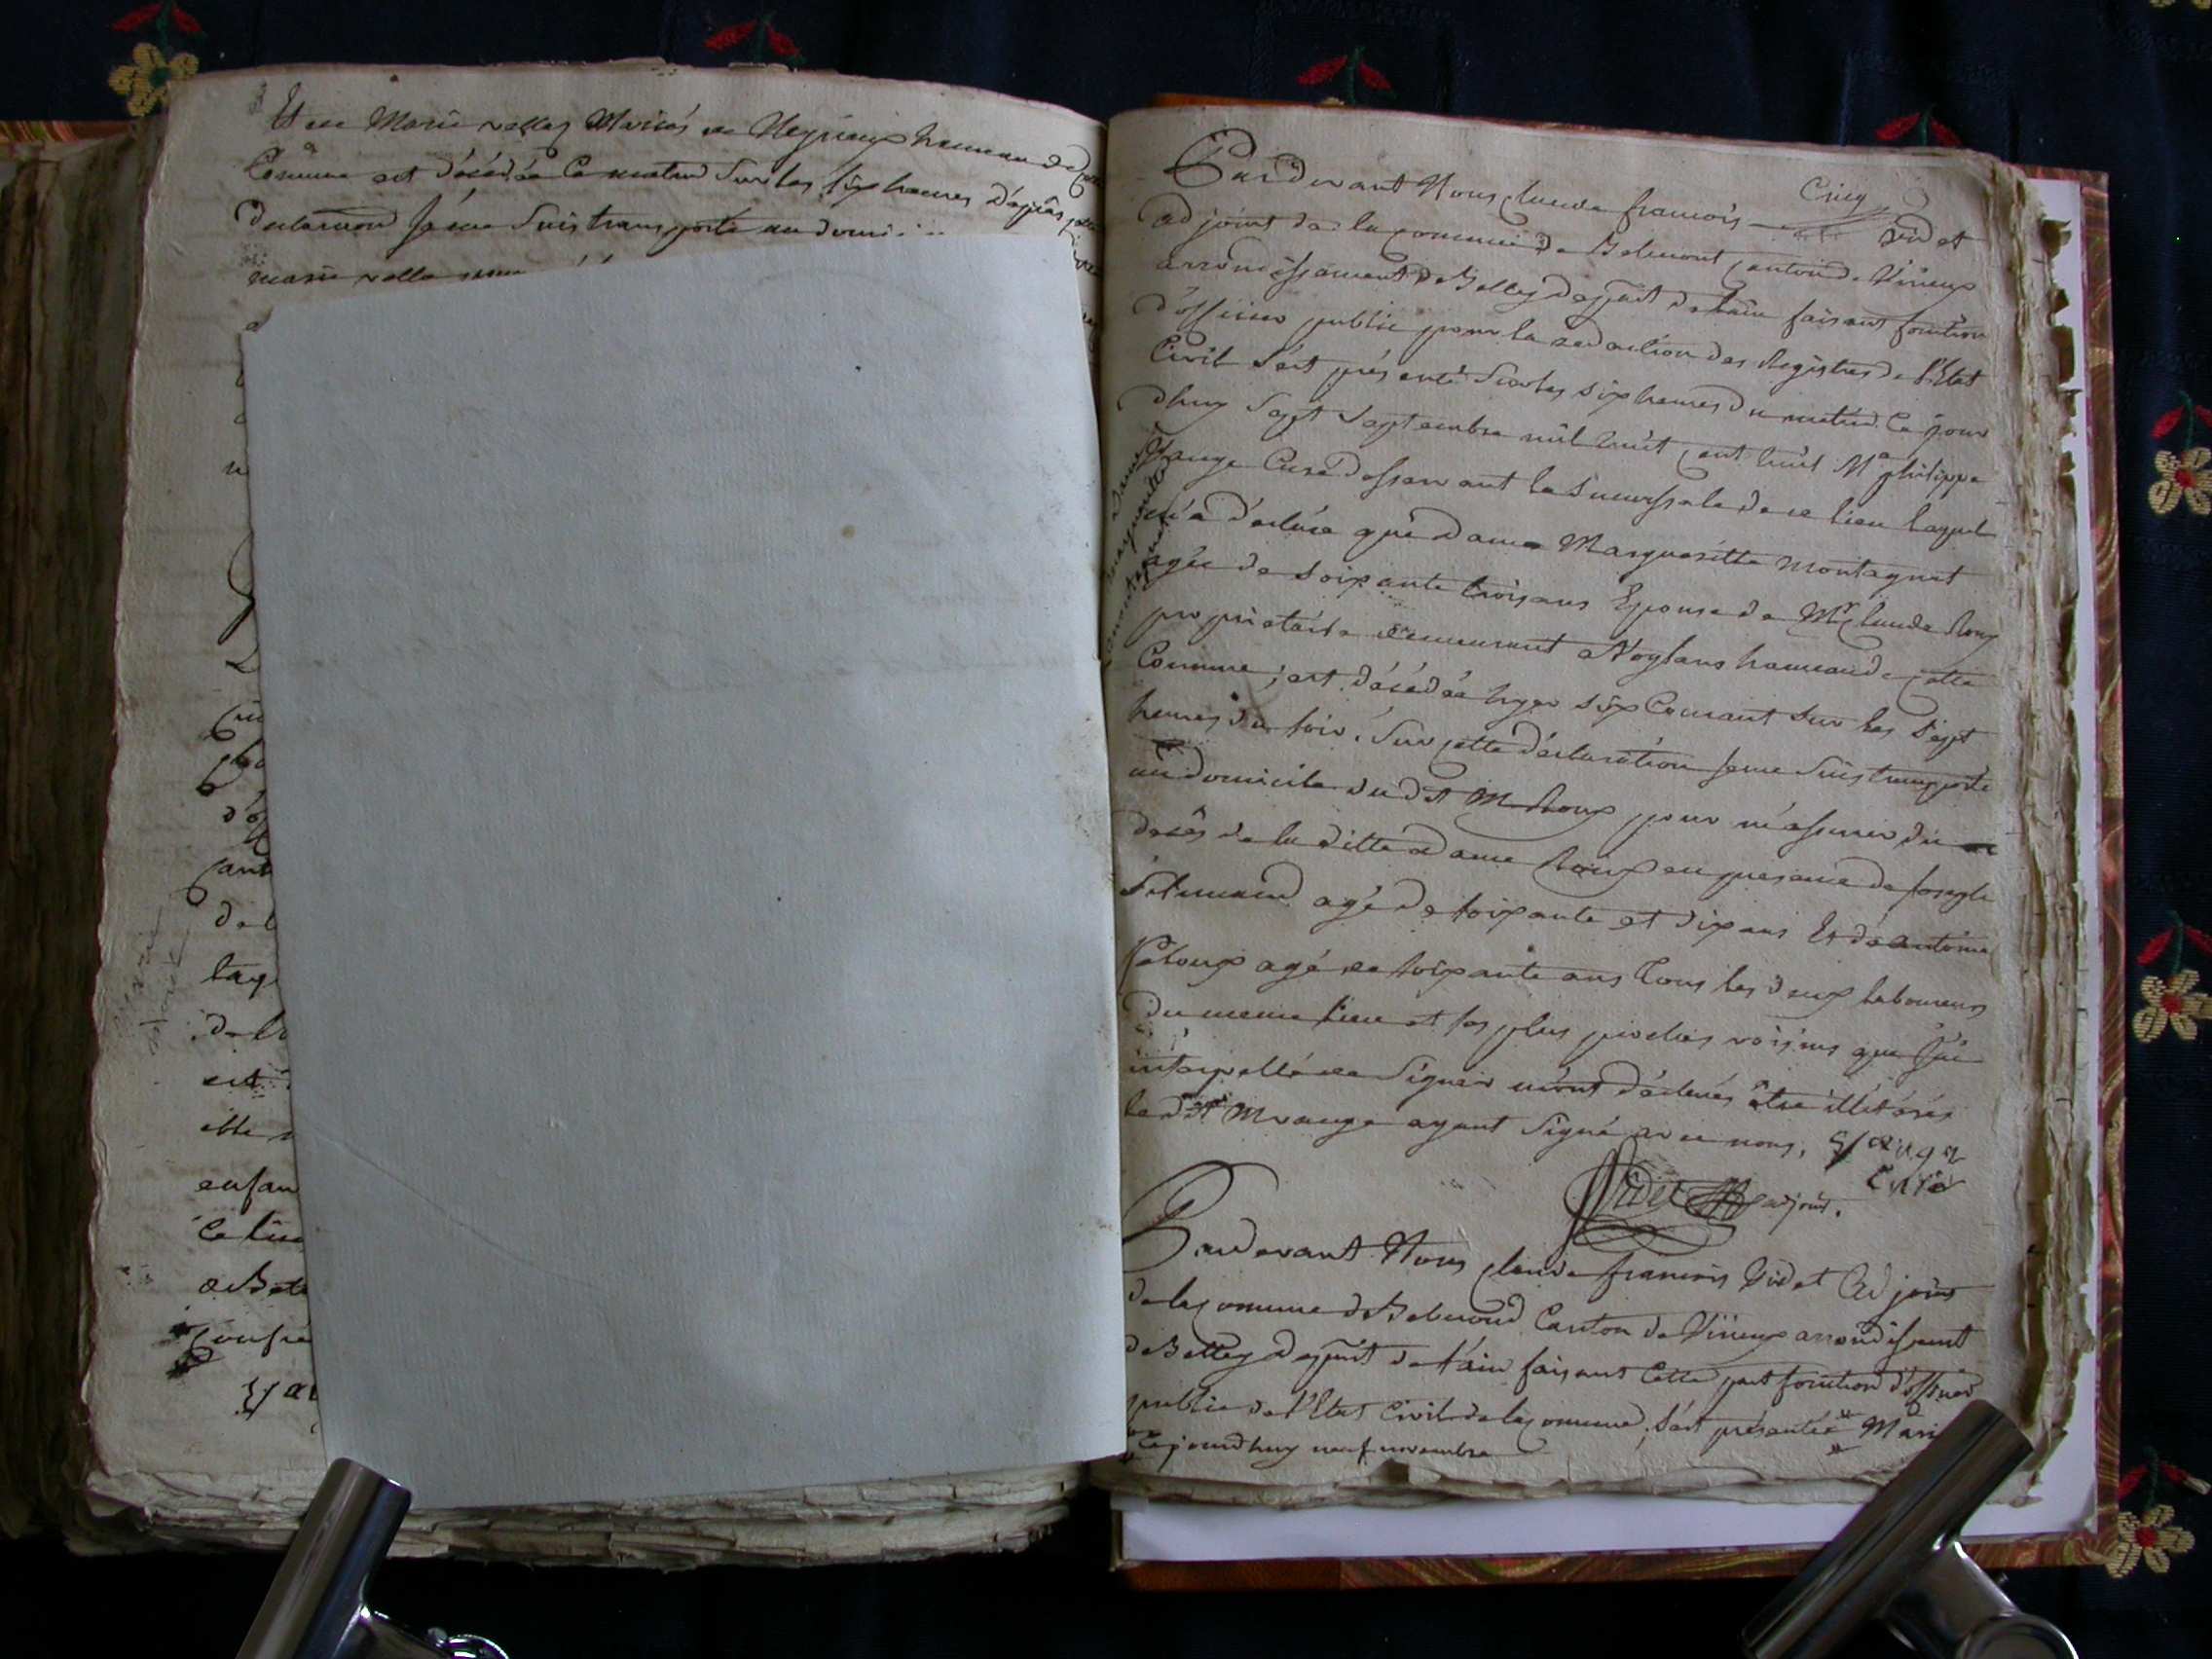 Et de Marie vellas Mariés de Neyrieux hameau de cette
Comune est décédée Ce matin Sur les six heures d'après cette
declaration Je me suis transporté au domi
marie vella
Cinq
Pardevant Nous Claude francois Videt
adjoint de la commune de Belmont canton de Virieux
arrondissement de Belley depart de L'ain faisant fonction
d'officier public pour la redaction des Registres de l'Etat
Civil S'est présenté Sur les six heures du matin Ce jour
dhuy Sept Septembre mil huit cent huit Mr philippe
Yauge Curé desservant la Sucurssale de ce lieu laquel
m'a déclaré que dame Margueritte Montagnat
agée de Soixante trois ans Epouse de Mr Claude Roux
propriétaire demeurant a Voglans hameau de cette
Comune, est décédée hyer six Courant sur les Sept
heures du soir. Sur cette déclaration Je me suis transporté
au domicile dudit Mr Roux pour m'assurer du
decès de la ditte dame Roux en presence de Joseph
agé de soixante et dix ans Et de antoine
agé de soixante ans tous les deux laboureurs
du meme lieu et les plus proches voisins que J'ai
interpellé de Signer m'ont déclarés être illitérés
le dit Mr auge ayant Signé avec nous,
Curé
Videt adjoint.
Pardevant Nous Claude francois Videt Adjoint
de la comune de Belmond Canton de Virieux arrondissemt
de Belley depart de L'ain faisant Cette part fonction d'officier
public de l'Etat Civil de la comune, S'est présentée Mari
Cejourdhuy neuf novembre
dame
marguerite
montagnat
d'of
cant
de l
laq
de la
est
elle
enfan
Ce lieu